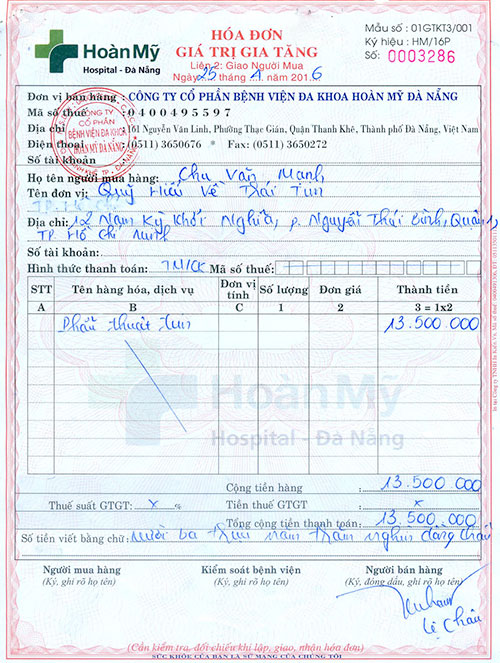 HoànMỹ
Hospital - Đà Nẵng
HÓA ĐƠN
GIÁ TRỊ GIA TĂNG
Liên 2: Giao Người Mua
Ngày 25 tháng 1 năm 2016
Mẫu số : 01GTKT3/001
Ký hiệu : HM/16P
Số: 0003286
Đơn vị bán hàng : CÔNG TY CỔ PHẦN BỆNH VIỆN ĐA KHOA HOÀN MỸ ĐÀ NẴNG
Mã số thuế : 0 4 0 0 4 9 5 5 9 7
Địa chỉ : 161 Nguyễn Văn Linh, Phường Thạc Gián, Quận Thanh Khê, Thành phố Đà Nẵng, Việt Nam
Điện thoại : (0511) 3650676 * Fax: (0511) 3650272
Số tài khoản
CÔNG TY
CỔ PHẦN
BỆNH VIỆN ĐA KHOA
HOÀN MỸ ĐÀ NẴNG
Họ tên người mua hàng: Chu Văn Mạnh
Tên đơn vị: Quỹ Hiểu Về Trái Tim
Địa chỉ: 12 Nam Kỳ Khởi Nghĩa, P. Nguyễn Thái Bình, Quận 1,
TP Hồ Chí Minh
Số tài khoản:
Hình thức thanh toán: TM/CK Mã số thuế:
STT Tên hàng hóa, dịch vụ Đơn vị tính Số lượng Đơn giá Thành tiền
A B C 1 2 3 = 1x2
Phẫu thuật tim 13.500.000
HoànMỹ
Hospital - Đà Nẵng
Cộng tiền hàng : 13.500.000
Thuế suất GTGT: x % Tiền thuế GTGT : x
Tổng cộng tiền thanh toán: 13.500.000
Số tiền viết bằng chữ: Mười ba triệu năm trăm nghìn đồng chẵn
Người mua hàng Kiểm soát bệnh viện Người bán hàng
(Ký, ghi rõ họ tên) (Ký, ghi rõ họ tên) (Ký, đóng dấu, ghi rõ họ tên)
Lệ Châu
(Cần kiểm tra, đối chiếu khi lập, giao, nhận hóa đơn)
SỨC KHỎE CỦA BẠN LÀ SỨ MẠNG CỦA CHÚNG TÔI